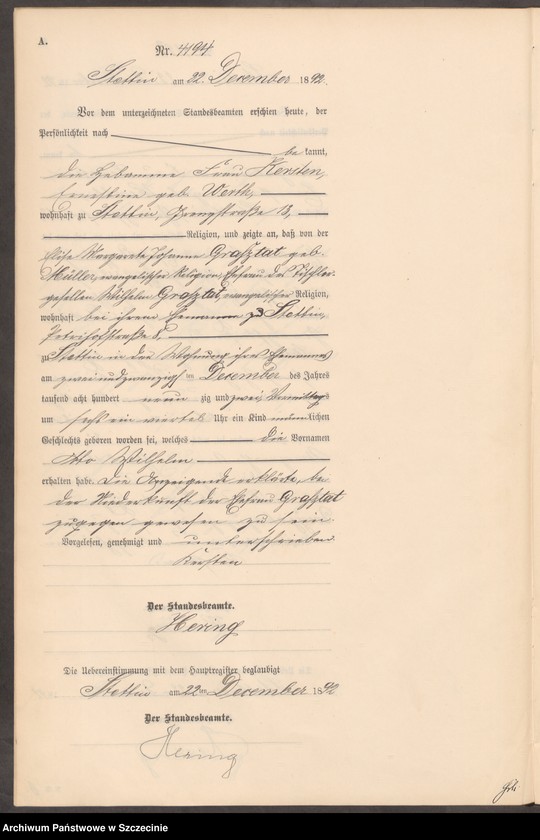 A.
Nr. 4194
Stettin am 22. December 1892.
Vor dem unterzeichneten Standesbeamten erschien heute, der
Persönlichkeit nach
be kannt,
die Hebamme Frau Kersten,
Ernestine geb. Werth,
wohnhaft zu Stettin, 13,
Religion, und zeigte an, daß von der
Margarete Johanna Grasztat geb.
Müller, evangelischer Religion, Ehefrau des Tischler-
gesellen Wilhelm Grasztat, evangelischer Religion,
wohnhaft bei ihrem Ehemanne zu Stettin,
Petrihofstraße 8,
zu Stettin in der Wohnung ihres Ehemannes
am zwei und zwanzigsten December des Jahres
tausend acht hundert neun zig und zwei, Vormittags
um sechs ein viertel Uhr ein Kind männlichen
Geschlechts geboren worden sei, welches die Vornamen
Otto Wilhelm
erhalten habe. Die Anzeigende erklärte, bei
der Niederkunft der Ehefrau Grasztat
zugegen gewesen zu sein.
Vorgelesen, genehmigt und unterschrieben
Kersten
Der Standesbeamte.
Hering
Die Uebereinstimmung mit dem Hauptregister beglaubigt
Stettin am 22ten December 1892
Der Standesbeamte.
Hering
Archiwum Państwowe w Szczecinie